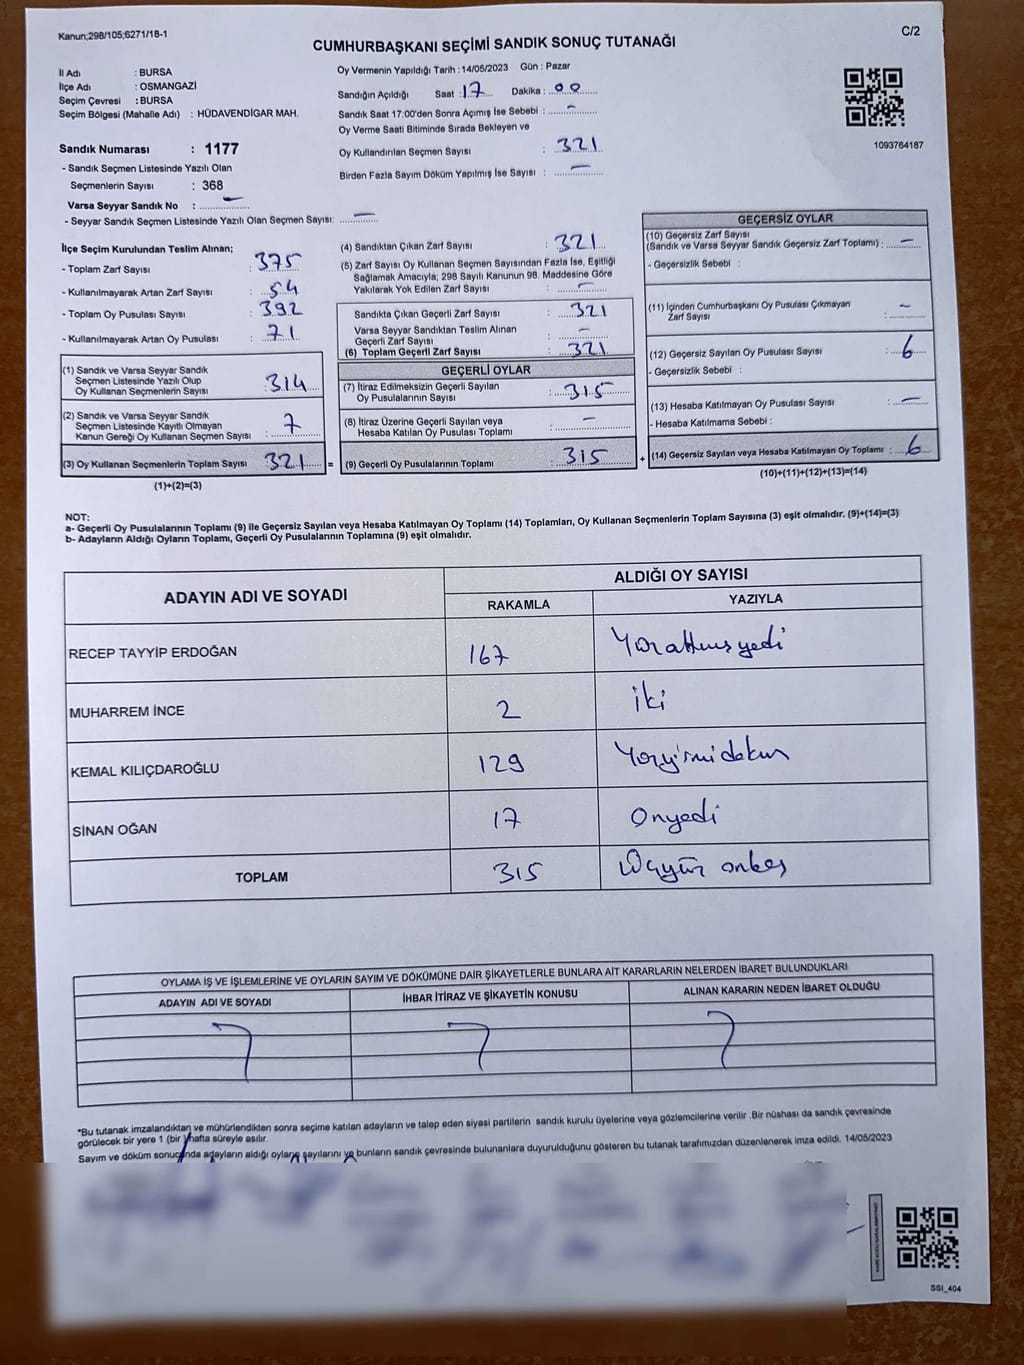 Kanun;298/105;6271/18-1
C/2
CUMHURBAŞKANI SEÇİMİ SANDIK SONUÇ TUTANAĞI
İl Adı : BURSA
İlçe Adı : OSMANGAZİ
Seçim Çevresi : BURSA
Seçim Bölgesi (Mahalle Adı) : HÜDAVENDİGAR MAH.
Sandık Numarası : 1177
- Sandık Seçmen Listesinde Yazılı Olan
Seçmenlerin Sayısı : 368
Varsa Seyyar Sandık No : —
- Seyyar Sandık Seçmen Listesinde Yazılı Olan Seçmen Sayısı: —
Oy Vermenin Yapıldığı Tarih : 14/05/2023 Gün : Pazar
Sandığın Açıldığı Saat : 17 Dakika : 00
Sandık Saat 17:00'den Sonra Açımış İse Sebebi : —
Oy Verme Saati Bitiminde Sırada Bekleyen ve
Oy Kullandırılan Seçmen Sayısı : 321
Birden Fazla Sayım Döküm Yapılmış İse Sayısı : —
1093764187
İlçe Seçim Kurulundan Teslim Alınan;
- Toplam Zarf Sayısı : 375
- Kullanılmayarak Artan Zarf Sayısı : 54
- Toplam Oy Pusulası Sayısı : 392
- Kullanılmayarak Artan Oy Pusulası : 71
(1) Sandık ve Varsa Seyyar Sandık
Seçmen Listesinde Yazılı Olup
Oy Kullanan Seçmenlerin Sayısı : 314
(2) Sandık ve Varsa Seyyar Sandık
Seçmen Listesinde Kayıtlı Olmayan
Kanun Gereği Oy Kullanan Seçmen Sayısı : 7
(3) Oy Kullanan Seçmenlerin Toplam Sayısı : 321 =
(1)+(2)=(3)
(4) Sandıktan Çıkan Zarf Sayısı : 321
(5) Zarf Sayısı Oy Kullanan Seçmen Sayısından Fazla İse, Eşitliği
Sağlamak Amacıyla; 298 Sayılı Kanunun 98. Maddesine Göre
Yakılarak Yok Edilen Zarf Sayısı : —
Sandıkta Çıkan Geçerli Zarf Sayısı : 321
Varsa Seyyar Sandıktan Teslim Alınan
Geçerli Zarf Sayısı : —
(6) Toplam Geçerli Zarf Sayısı : 321
GEÇERLİ OYLAR
(7) İtiraz Edilmeksizin Geçerli Sayılan
Oy Pusulalarının Sayısı : 315
(8) İtiraz Üzerine Geçerli Sayılan veya
Hesaba Katılan Oy Pusulası Toplamı : —
(9) Geçerli Oy Pusulalarının Toplamı : 315 +
GEÇERSİZ OYLAR
(10) Geçersiz Zarf Sayısı
(Sandık ve Varsa Seyyar Sandık Geçersiz Zarf Toplamı) : —
- Geçersizlik Sebebi :
(11) İçinden Cumhurbaşkanı Oy Pusulası Çıkmayan
Zarf Sayısı : —
(12) Geçersiz Sayılan Oy Pusulası Sayısı : 6
- Geçersizlik Sebebi :
(13) Hesaba Katılmayan Oy Pusulası Sayısı : —
- Hesaba Katılmama Sebebi :
(14) Geçersiz Sayılan veya Hesaba Katılmayan Oy Toplamı : 6
(10)+(11)+(12)+(13)=(14)
NOT:
a- Geçerli Oy Pusulalarının Toplamı (9) ile Geçersiz Sayılan veya Hesaba Katılmayan Oy Toplamı (14) Toplamları, Oy Kullanan Seçmenlerin Toplam Sayısına (3) eşit olmalıdır. (9)+(14)=(3)
b- Adayların Aldığı Oyların Toplamı, Geçerli Oy Pusulalarının Toplamına (9) eşit olmalıdır.
ADAYIN ADI VE SOYADI
ALDIĞI OY SAYISI
RAKAMLA YAZIYLA
RECEP TAYYİP ERDOĞAN 167 Yüzaltmışyedi
MUHARREM İNCE 2 iki
KEMAL KILIÇDAROĞLU 129 Yüzyirmidokuz
SİNAN OĞAN 17 Onyedi
TOPLAM 315 Üçyüz onbeş
OYLAMA İŞ VE İŞLEMLERİNE VE OYLARIN SAYIM VE DÖKÜMÜNE DAİR ŞİKAYETLERLE BUNLARA AİT KARARLARIN NELERDEN İBARET BULUNDUKLARI
ADAYIN ADI VE SOYADI İHBAR İTİRAZ VE ŞİKAYETİN KONUSU ALINAN KARARIN NEDEN İBARET OLDUĞU
*Bu tutanak imzalandıktan ve mühürlendikten sonra seçime katılan adayların ve talep eden siyasi partilerin sandık kurulu üyelerine veya gözlemcilerine verilir .Bir nüshası da sandık çevresinde
görülecek bir yere 1 (bir )hafta süreyle asılır.
Sayım ve döküm sonucunda adayların aldığı oyların sayılarını ve bunların sandık çevresinde bulunanlara duyurulduğunu gösteren bu tutanak tarafımızdan düzenlenerek imza edildi. 14/05/2023
SSI_404